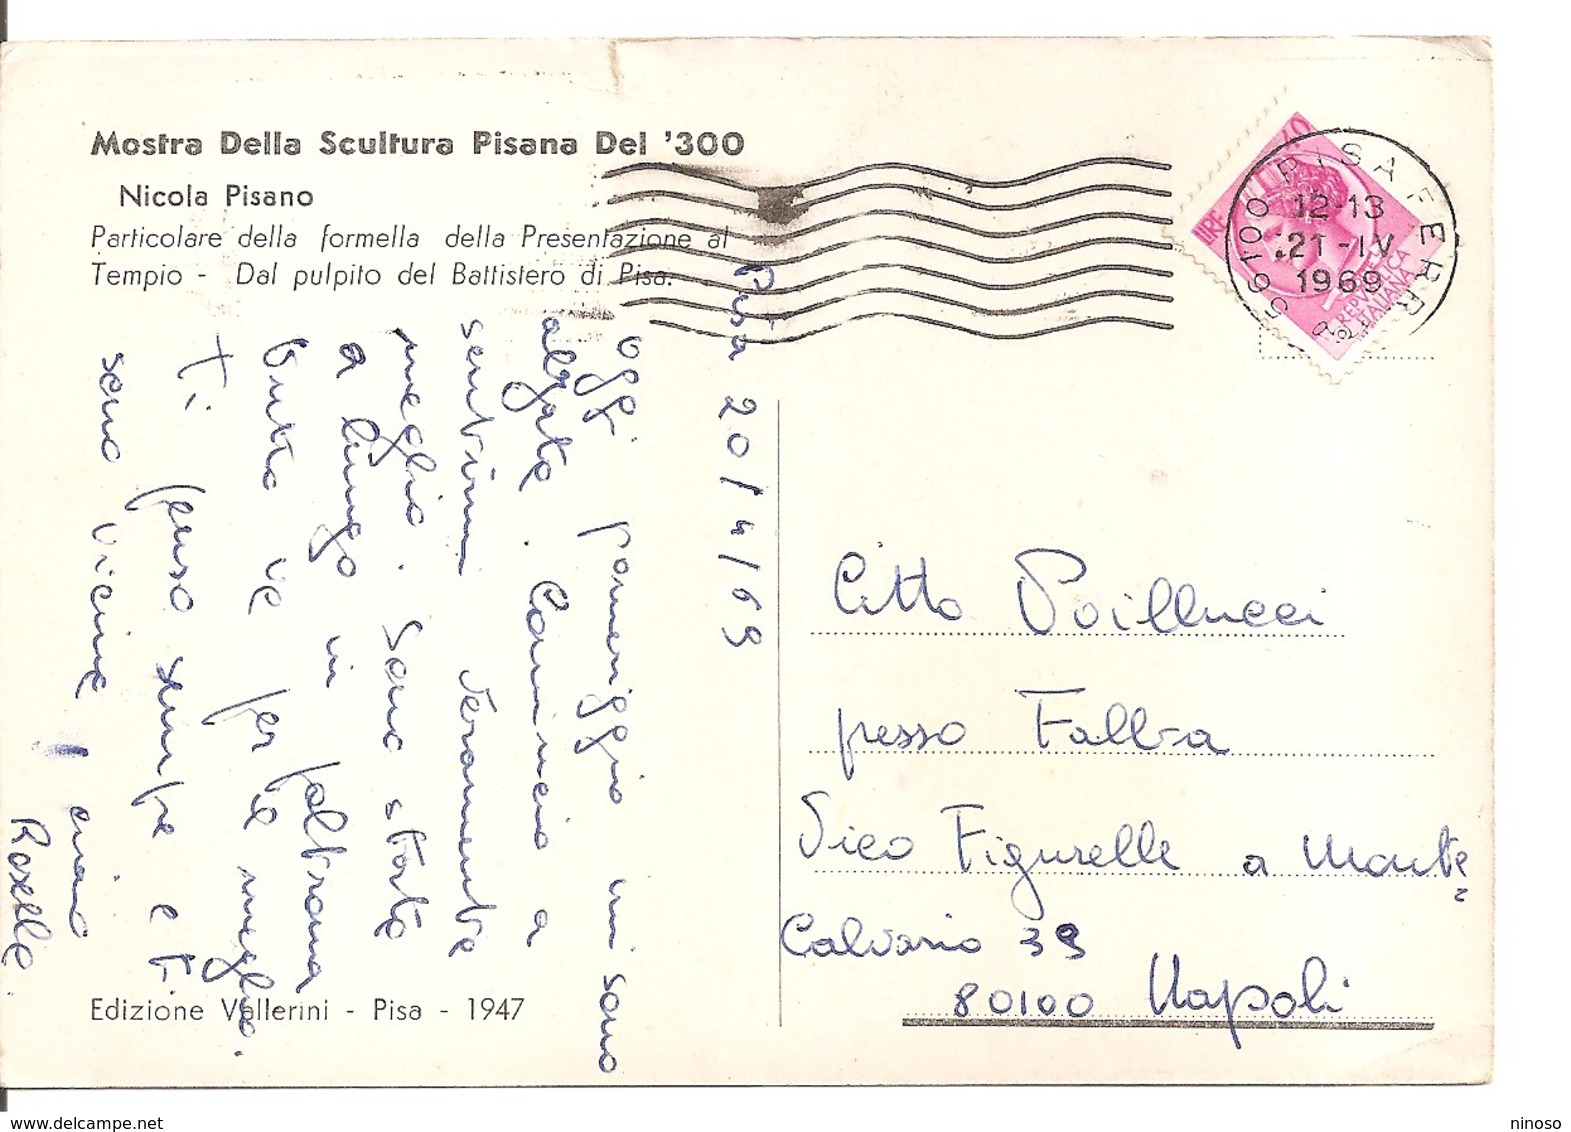 Mostra Della Scultura Pisana Del '300
Nicola Pisano
Particolare della formella della Presentazione al
Tempio - Dal pulpito del Battistero di Pisa.
Pisa 20/4/69
oggi pomeriggio mi sono
alzata. Comincio a
sentirmi veramente
meglio. Sono stata
a lungo in poltrona
tutto va per il meglio.
Ti penso sempre e ti
sono vicina, ciao
Edizione Vallerini - Pisa - 1947
LIRE 40
REPVBBLICA
ITALIANA
56100 PISA FERR
12-13
21-IV
1969
Citto Poillucci
presso Falbra
Vico Figurelle a Monte
Calvario 39
80100 Napoli
www.delcampe.net
ninoso